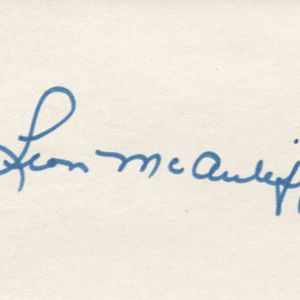 Leon McAuliff